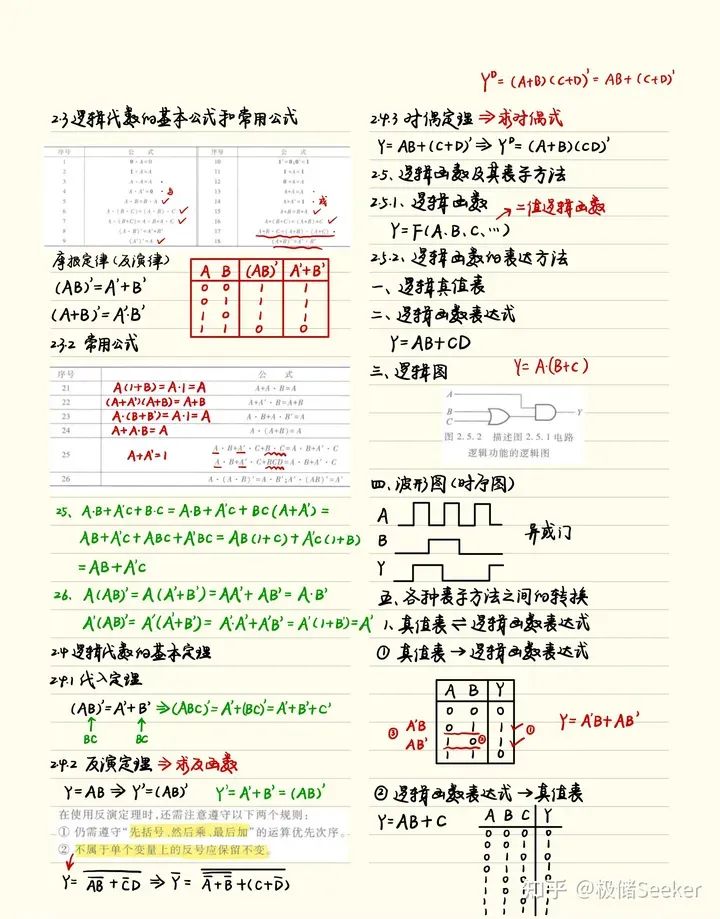 Y^D = (A+B)(C+D)' = AB+(C+D)'
2.3 逻辑代数的基本公式和常用公式
序号 公 式 序号 公 式
1 0·A=0 10 1'=0;0'=1
2 1·A=A 11 1+A=1
3 A·A=A 12 0+A=A
4 A·A'=0 与 13 A+A=A
5 A·B=B·A 14 A+A'=1 或
6 A·(B·C)=(A·B)·C 15 A+B=B+A
7 A·(B+C)=A·B+A·C 16 A+(B+C)=(A+B)+C
8 (A·B)'=A'+B' 17 A+B·C=(A+B)·(A+C)
9 (A')'=A 18 (A+B)'=A'·B'
摩根定律(反演律)
(AB)'=A'+B'
(A+B)'=A'·B'
A B (AB)' A'+B'
0 0 1 1
0 1 1 1
1 0 1 1
1 1 0 0
2.3.2 常用公式
序号 公 式
21 A(1+B)=A·1=A A+A·B=A
22 (A+A')(A+B)=A+B A+A'·B=A+B
23 A·(B+B')=A·1=A A·B+A·B'=A
24 A+A·B=A A·(A+B)=A
25 A+A'=1 A·B+A'·C+B·C=A·B+A'·C
A·B+A'·C+BCD=A·B+A'·C
26 A·(A·B)'=A·B';A'·(AB)'=A'
25、A·B+A'C+B·C=A·B+A'C+BC(A+A')=
AB+A'C+ABC+A'BC=AB(1+C)+A'C(1+B)
=AB+A'C
26、A(AB)'=A(A'+B')=AA'+AB'=A·B'
A'(AB)'=A'(A'+B')=A'·A'+A'B'=A'(1+B')=A'
2.4 逻辑代数的基本定理
2.4.1 代入定理
(AB)'=A'+B' ⇒(ABC)'=A'+(BC)'=A'+B'+C'
BC BC
2.4.2 反演定理⇒求反函数
Y=AB ⇒ Y'=(AB)' Y'=A'+B'=(AB)'
在使用反演定理时,还需注意遵守以下两个规则:
① 仍需遵守“先括号、然后乘、最后加”的运算优先次序。
② 不属于单个变量上的反号应保留不变。
2.4.3 对偶定理⇒求对偶式
Y=AB+(C+D)'⇒Y^D=(A+B)(CD)'
2.5、逻辑函数及其表示方法
2.5.1、逻辑函数 →二值逻辑函数
Y=F(A、B、C、…)
2.5.2、逻辑函数的表达方法
一、逻辑真值表
二、逻辑函数表达式
Y=AB+CD
三、逻辑图 Y=A·(B+C)
A
B
C
Y
图 2.5.2 描述图 2.5.1 电路
逻辑功能的逻辑图
四、波形图(时序图)
A
B
Y
异或门
五、各种表示方法之间的转换
1、真值表⇌逻辑函数表达式
① 真值表→逻辑函数表达式
A B Y
0 0 0
③ A'B 0 1 1 ①
AB' 1 0 ② 1
1 1 0
Y=A'B+AB'
② 逻辑函数表达式→真值表
Y=AB+C
A B C Y
0 0 0
0 0 1
0 1 0
0 1 1
知乎 @极储Seeker